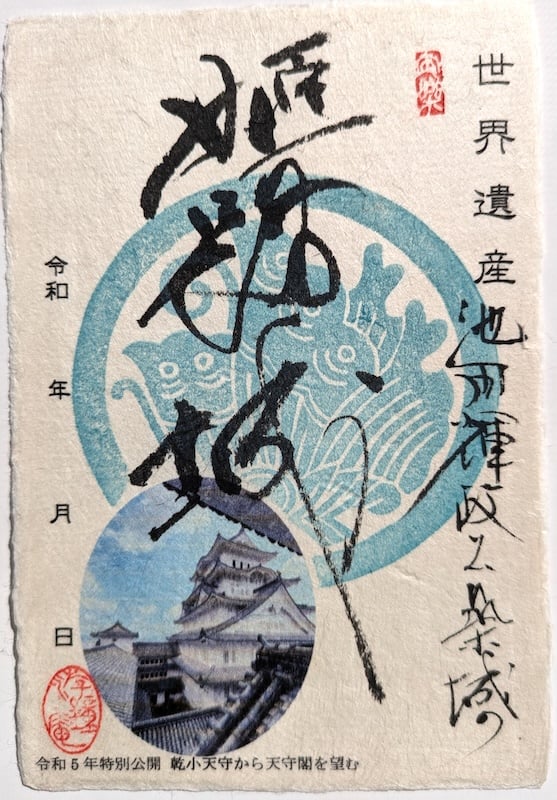 世界遺産池田輝政公築城の
姫路城
令和 年 月 日
令和5年特別公開 乾小天守から天守閣を望む